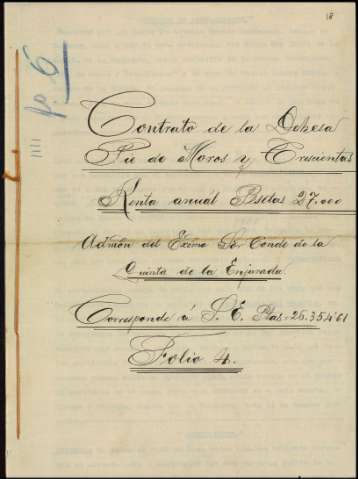 18
fo. 6
Contrato de la Dehesa
Pie de Moros y Trescientas
Renta anuál Psetas 27.000
Admón del Exmo Sor Conde de la
Quinta de la Enjarada
Corresponde á S. E. Ptas. 26.354'61
Folio 4.